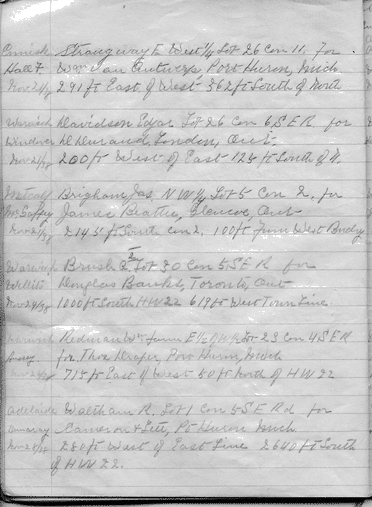 Strangway E West ½ Lot 26 Con 11, for
Hall F Wm Van Antwerp Port Huron, Mich
Nov 21/ 291 ft East of West 362 ft South of North
Warwick Davidson Edgar Lot 26 Con 6 S E R for
London, Ont
Nov 21/ 200 ft West of East 125 ft South of N.
Metcalf Brigham Jas N W ¼ Lot 5 Con 2, for
McGaffey James Beattie, Glencoe, Ont
Nov 21/ 2145 ft South Con 2. 100 ft from West Bndry
Warwick Brush Lot 30 Con 5 S E R for
Douglas Banks, Toronto, Ont
Nov 24/ 1000 ft South H W 22 619 ft West Town Line
Warwick Redman Wm farm E ½ of W ½ Lot 23 Con 4 S E R
for Thos Draper, Port Huron, Mich
715 ft East of West 50 ft North of H W 22
Adelaide Waltham R. Lot 1 Con 5 S E Rd for
Cameron & Pt Huron Mich
Nov 28/ 280 ft West of East Line 2640 ft South
of H W 22.